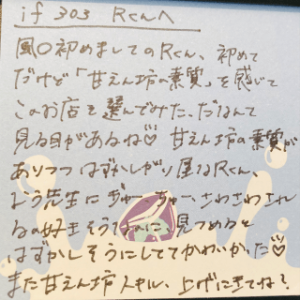 if 303 Rくんへ
風〇初めましてのRくん、初めて
だけど「甘えん坊の素質」を感じて
このお店を選んでみた、だなんて
見る目があるね♡ 甘えん坊の素質が
ありつつはずかしがり屋なRくん、
よう先生にぎゅー、ちゅー、さわさわされ
るの好きそうなのに 見つめると
はずかしそうにしててかわいかった♡
また甘えん坊スキル、上げにきてね？